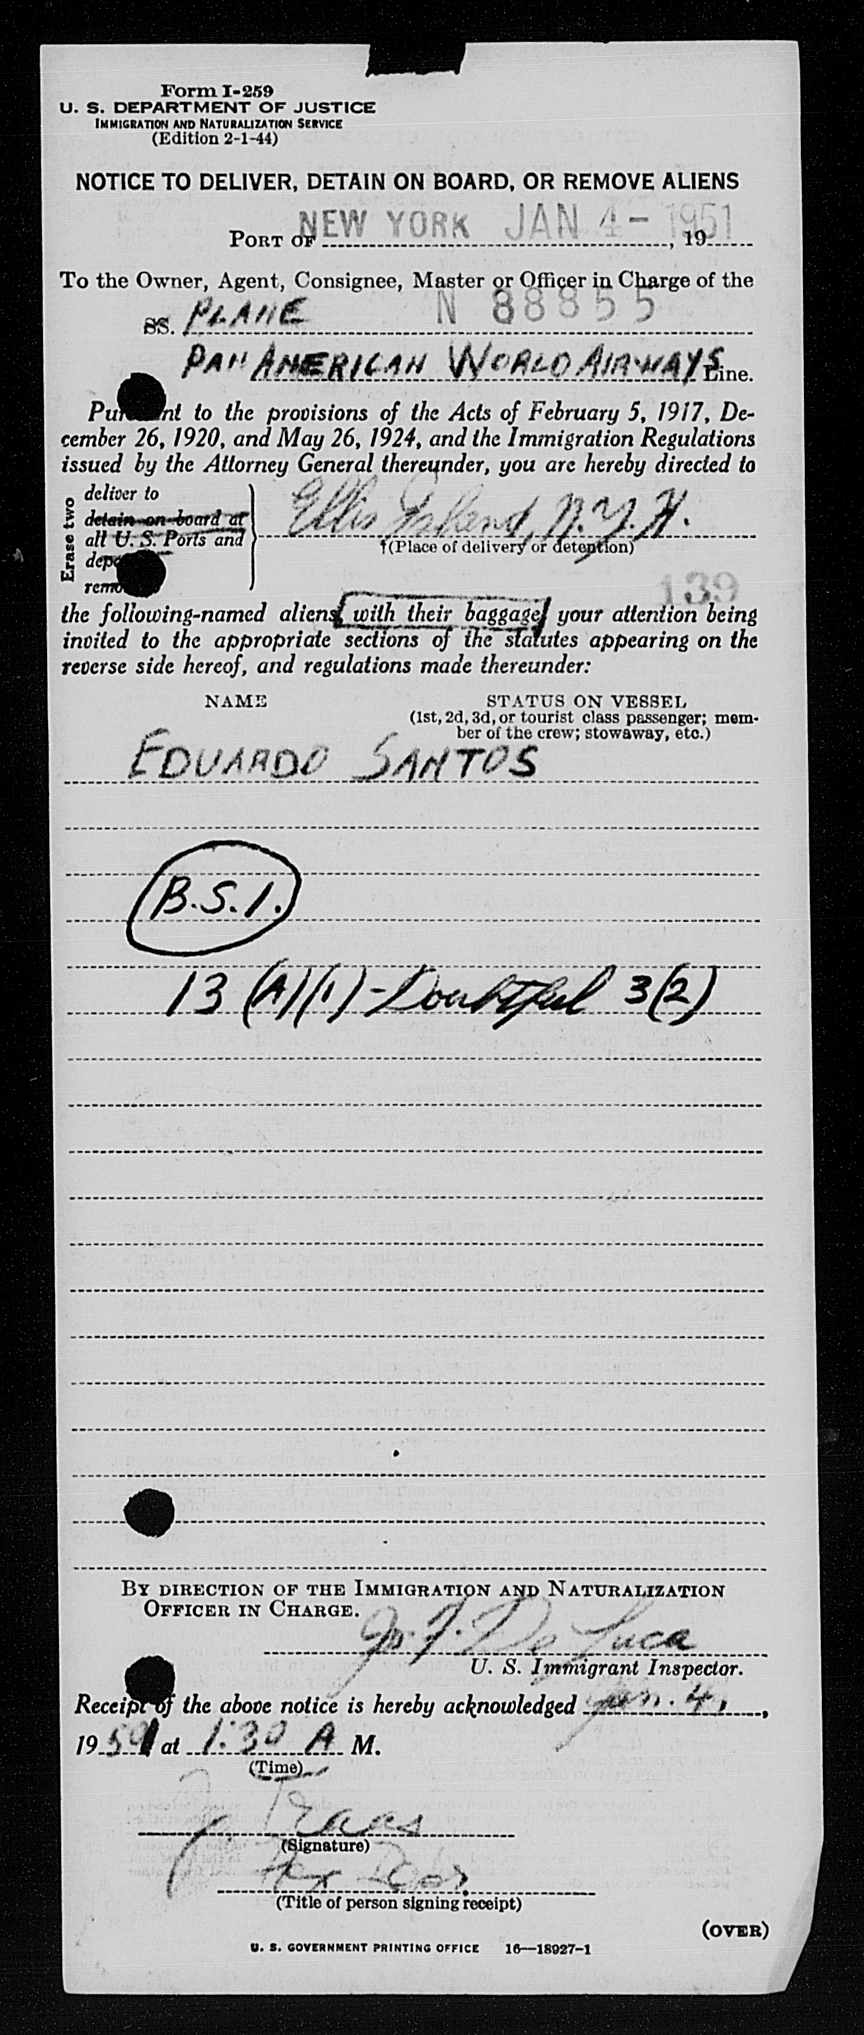 Form I-259
U. S. DEPARTMENT OF JUSTICE
IMMIGRATION AND NATURALIZATION SERVICE
(Edition 2-1-44)
NOTICE TO DELIVER, DETAIN ON BOARD, OR REMOVE ALIENS
PORT OF NEW YORK JAN 4 - 1951, 19
To the Owner, Agent, Consignee, Master or Officer in Charge of the
SS. PLANE N 88855
PAN AMERICAN WORLD AIRWAYS Line.
Pursuant to the provisions of the Acts of February 5, 1917, De-
cember 26, 1920, and May 26, 1924, and the Immigration Regulations
issued by the Attorney General thereunder, you are hereby directed to
Erase two
deliver to
detain on board at
all U. S. Ports and
Ellis Island, N.Y.H.
†(Place of delivery or detention)
139
the following-named aliens with their baggage your attention being
invited to the appropriate sections of the statutes appearing on the
reverse side hereof, and regulations made thereunder:
NAME STATUS ON VESSEL
(1st, 2d, 3d, or tourist class passenger; mem-
ber of the crew; stowaway, etc.)
EDUARDO SANTOS
B.S.I.
13 (A)(1) - Doubtful 3(2)
BY DIRECTION OF THE IMMIGRATION AND NATURALIZATION
OFFICER IN CHARGE.
De Luca
U. S. Immigrant Inspector.
Receipt of the above notice is hereby acknowledged Jan. 4,
1951 at 1:30 A M.
(Time)
(Signature)
(Title of person signing receipt)
(OVER)
U. S. GOVERNMENT PRINTING OFFICE 16—18927-1